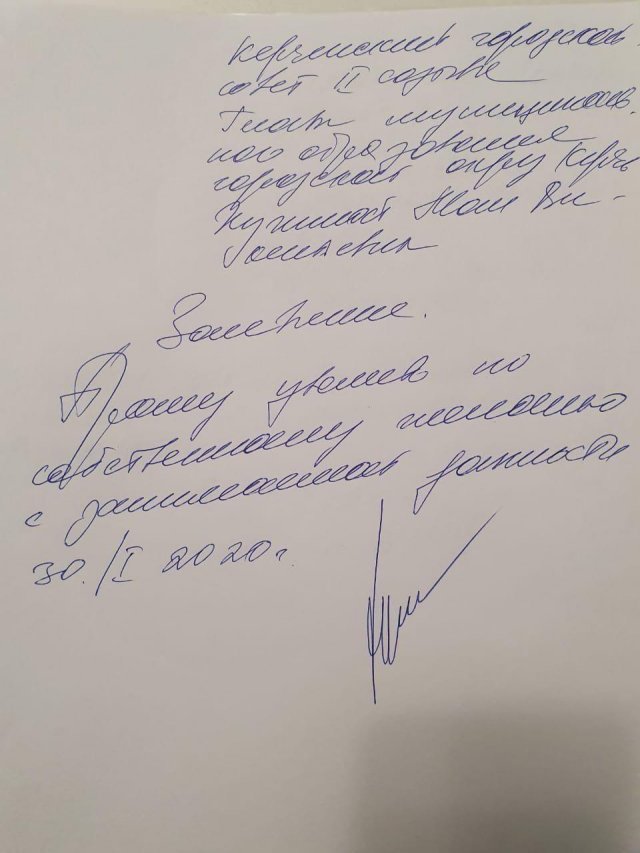 Керченский городской
совет II созыва
Глава муниципаль-
ного образования
городской округ Керчь
Ви-
Заявление.
Прошу уволить по
собственному желанию
с занимаемой должности
30./I 2020г.